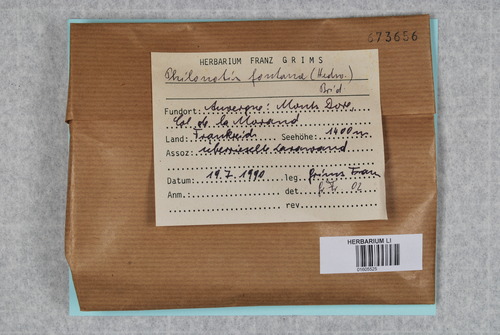 673656
HERBARIUM FRANZ GRIMS
Philonotis fontana (Hedw.)
Brid.
Fundort: Auvergne: Monts Dore,
Col de la Morand
Land: Frankreich Seehöhe: 1400 m
Assoz: überrieselte Lavawand
Datum: 19.7.1990 leg. Grims Franz
Anm.: det. 02
rev.
HERBARIUM LI